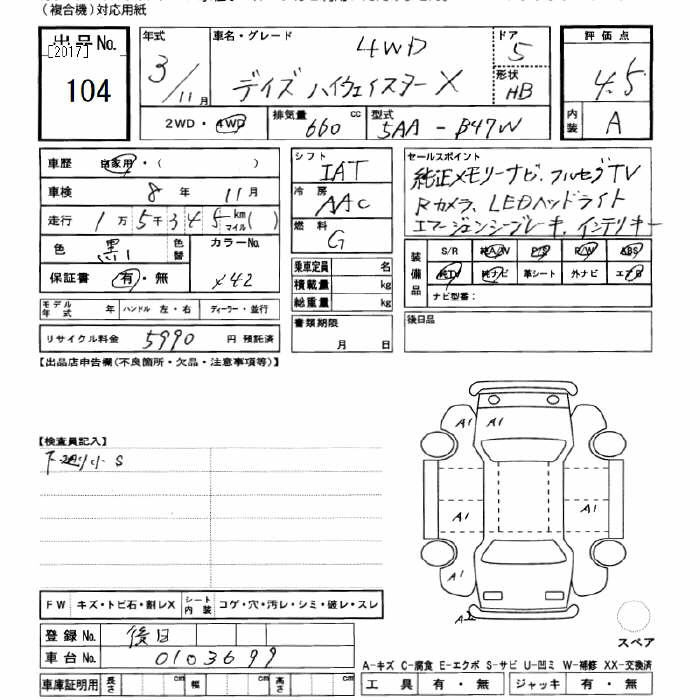 (複合機)対応用紙
出品No. 年式 車名・グレード 4WD ドア 評価点
[2017] 3/11月 デイズ ハイウェイスターX 5 4.5
104 形状 HB
2WD・4WD 排気量 660 cc 型式 5AA-B47W 内装 A
車歴 自家用・( ) シフト IAT セールスポイント
車検 8年 11月 冷房 AAC 純正メモリーナビ、フルセグTV
走行 1万5千345 km マイル( ) 燃料 G Rカメラ、LEDヘッドライト
エマージェンシーブレーキ、インテリキー
色 黒 色替 カラーNo. X42 乗車定員 名 装備品 S/R 純A/W P/S P/W ABS
保証書 有・無 積載量 kg 純TV 純ナビ 革シート 外ナビ エアB
総重量 kg ナビ型番:
モデル年式 年 ハンドル 左・右 ディーラー・並行 書類期限 月 日 後日品
リサイクル料金 5990 円 預託済
【出品店申告欄(不良箇所・欠品・注意事項等)】
【検査員記入】
下廻り小S
A1 A1
A1 A1
A1 A1
A2
FW キズ・トビ石・割レX シート内装 コゲ・穴・汚レ・シミ・破レ・スレ
登録No. 後日
車台No. 0103699
スペア
A-キズ C-腐食 E-エクボ S-サビ U-凹ミ W-補修 XX-交換済
車庫証明用 長さ cm 幅 cm 高さ cm 工具 有・無 ジャッキ 有・無